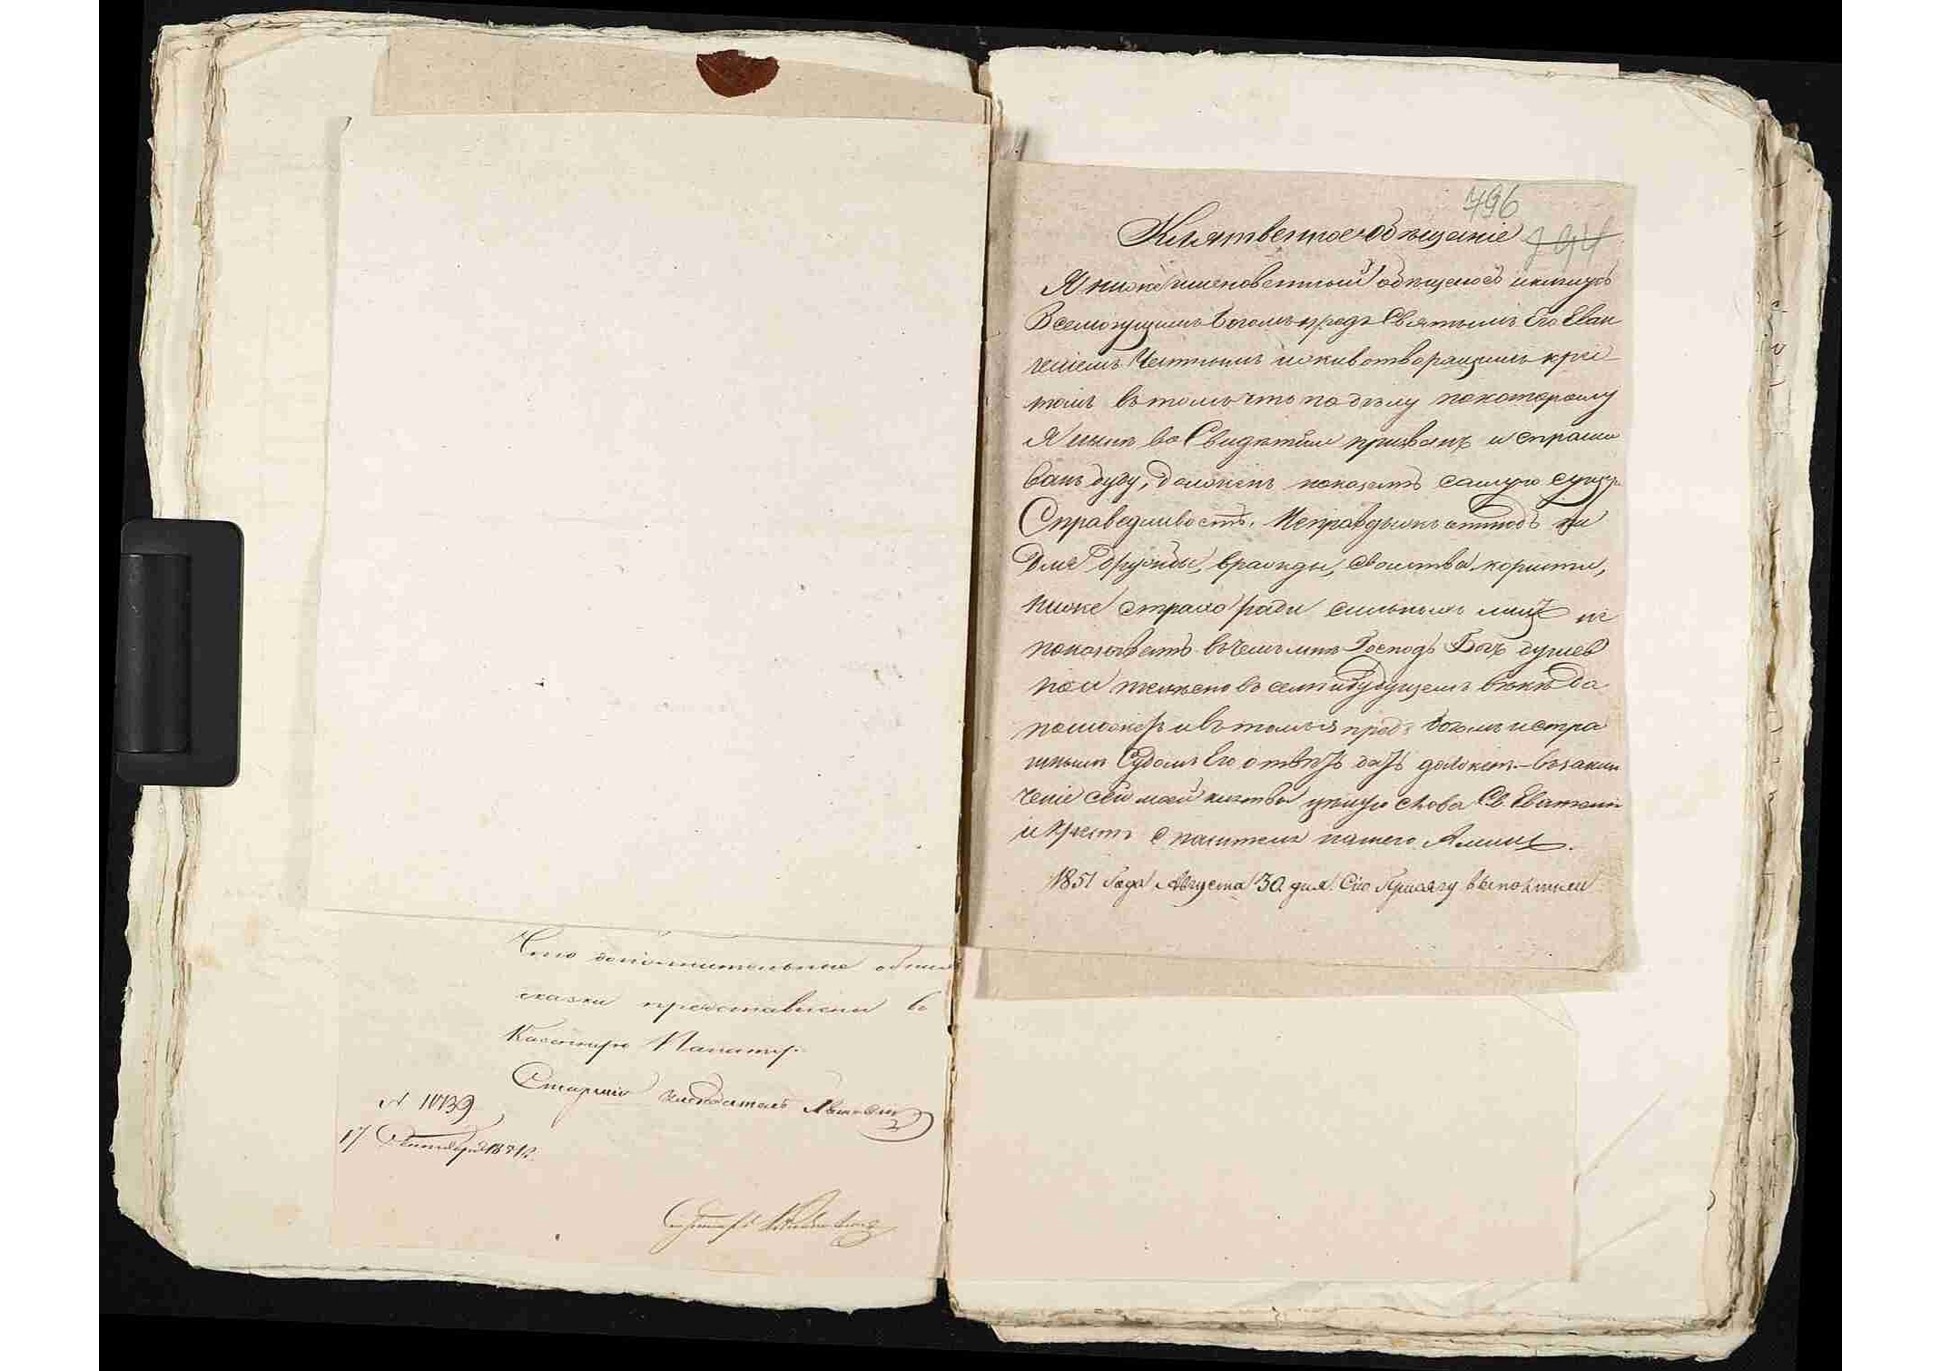 Что дополнительные
сказки представлены в
Казенную Палату.
Старший заседатель
N 1039
17 Сентября 1851 г.
Секретарь
496
Клятвенное обѣщаніе
Я нижеименованный обѣщаюсь и клянусь
Всемогущимъ Богомъ предъ Святымъ Его Еван
геліемъ Честнымъ и животворящимъ крес
томъ въ томъ что по дѣлу по которому
Я нынѣ во Свидѣтели призванъ и спраши
ванъ буду, долженъ показать самую сущую
Справедливость. Неправды
Для Дружбы, вражды, свойства корысти,
ниже страха ради сильныхъ лицъ не
показывать въ чемъ мнѣ Господь Богъ душев
но и телѣсно въ семъ и будущемъ вѣкѣ да
поможетъ и въ томъ я предъ Богомъ и стра
шнымъ Судомъ Его отвѣтъ дать долженъ. – Въ заклю
ченіе сей моей клятвы цѣлую слова Св. Евангелія
и Крестъ Спасителя нашего. Аминь.
1851 Года Августа 30 дня. Сію Присягу выполнили